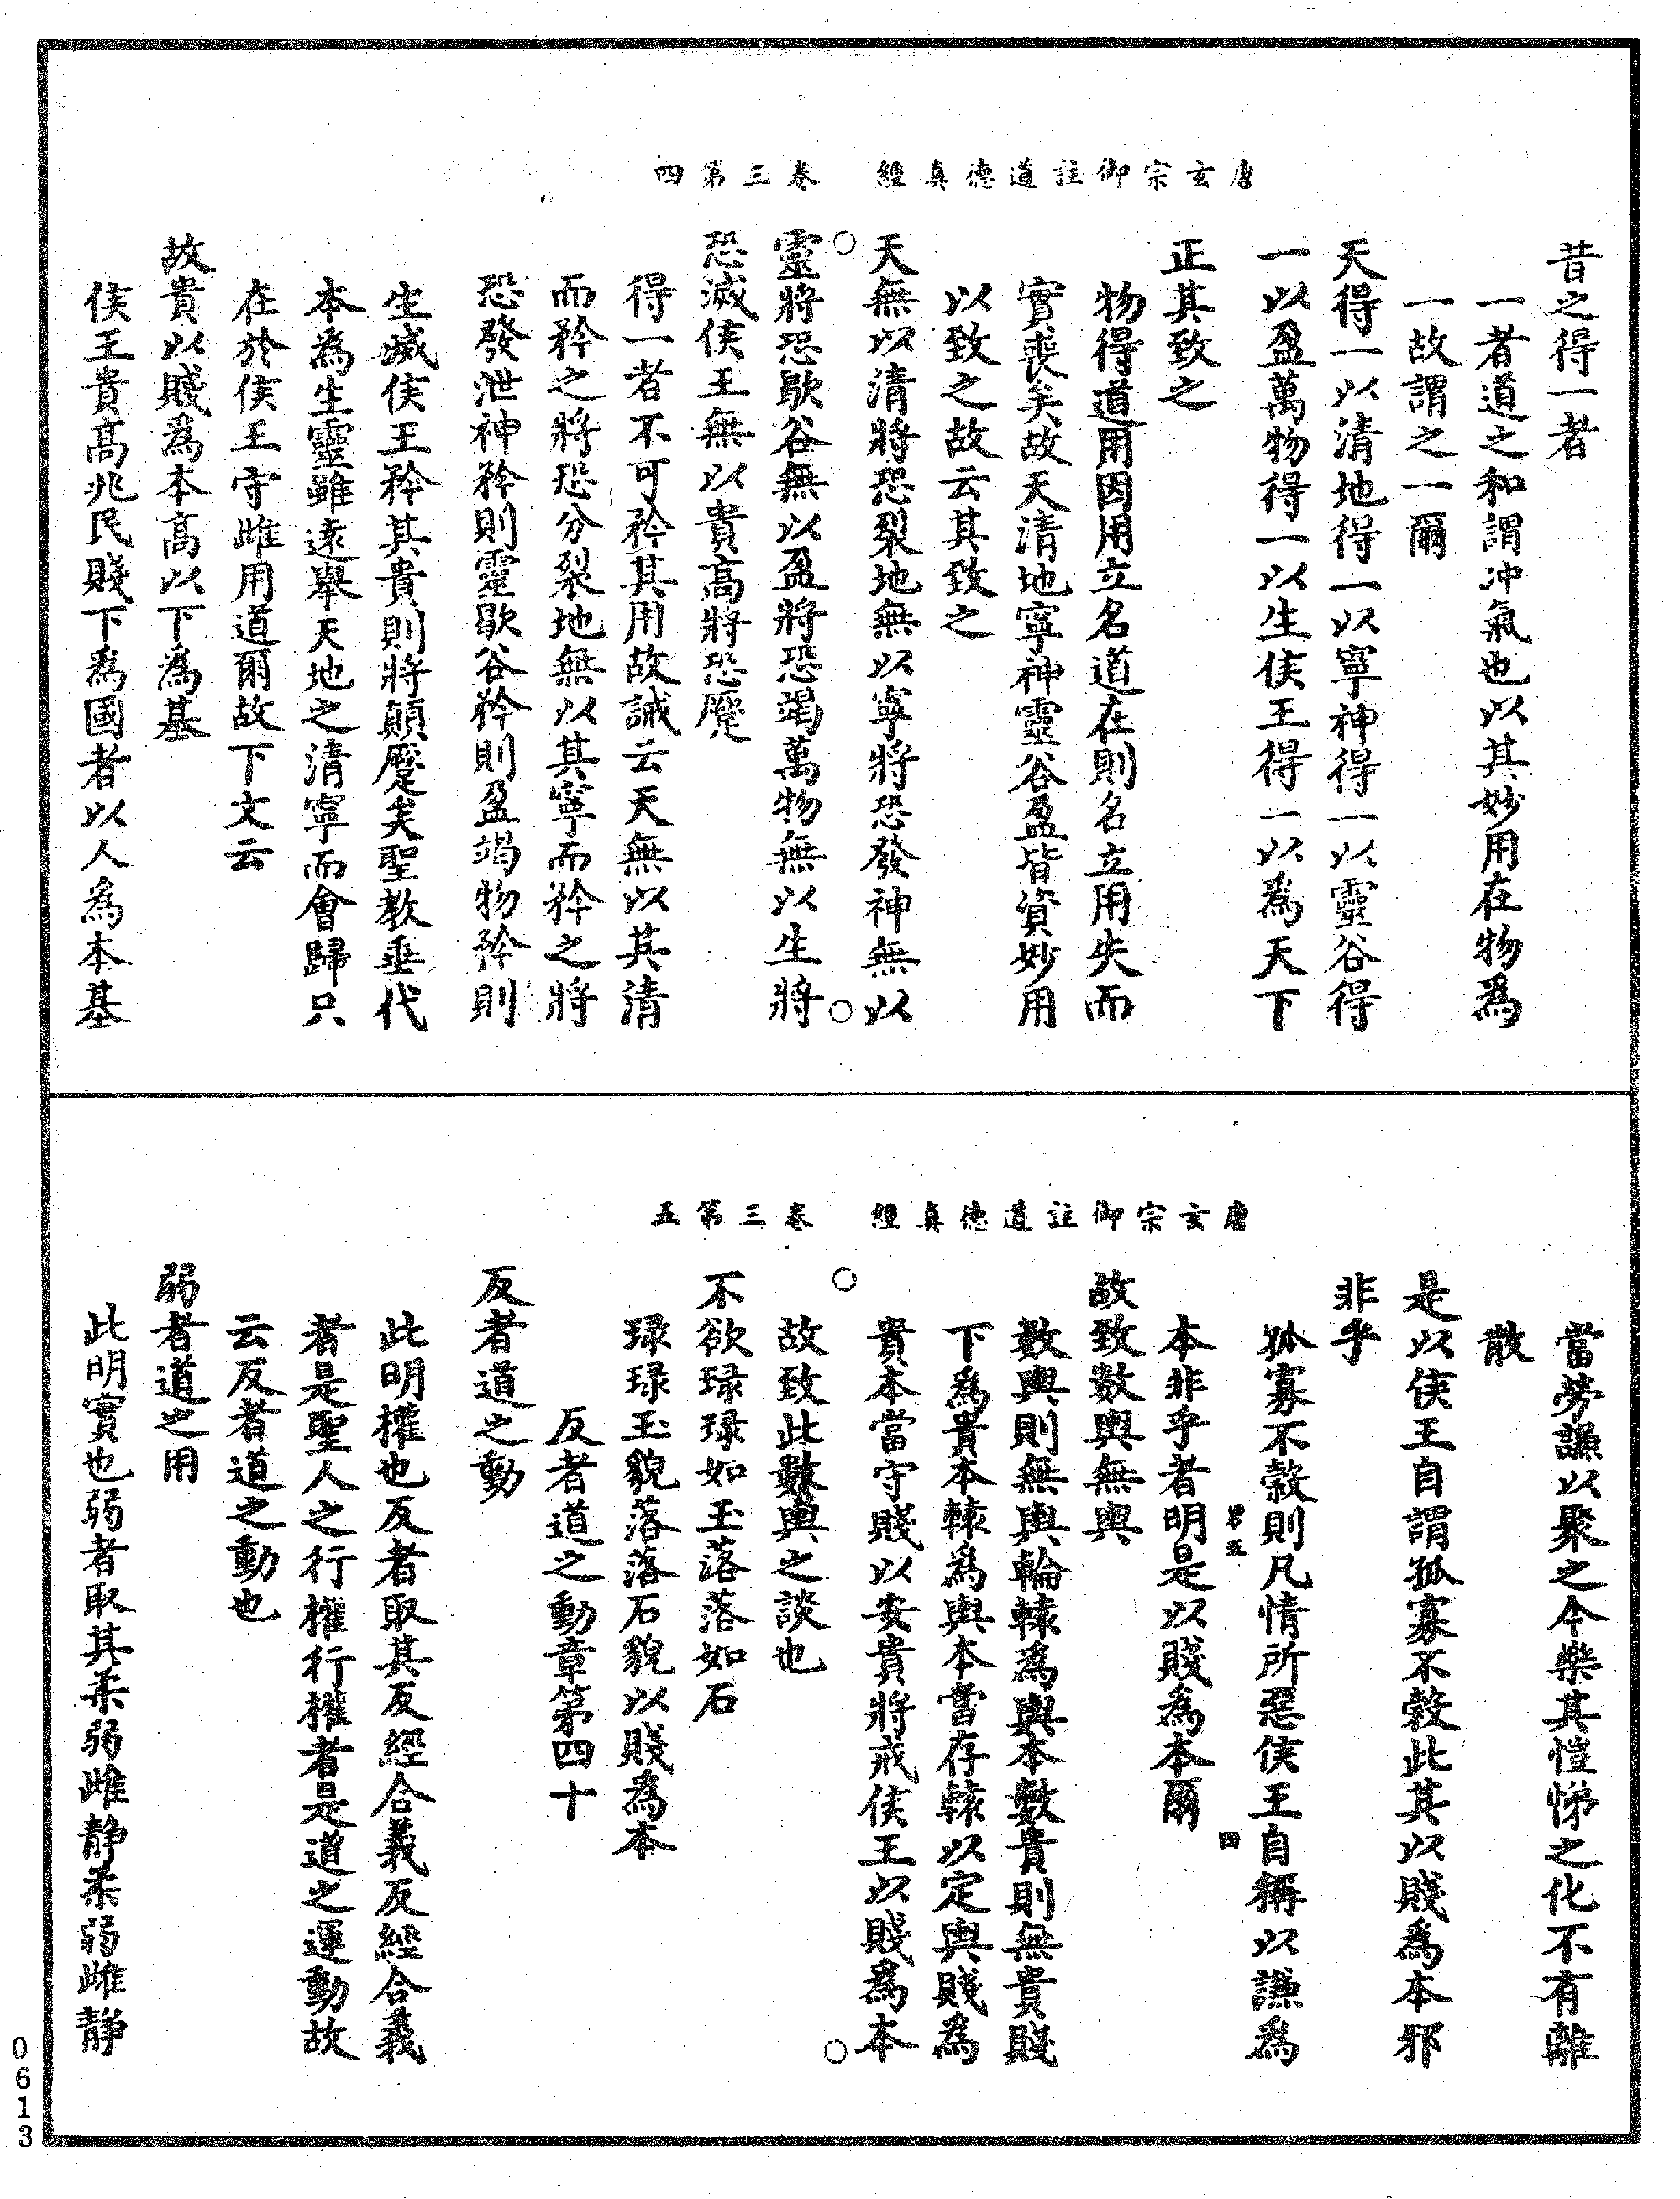 唐玄宗御註道德真經　卷三第四
昔之得一者
一者道之和謂冲氣也以其妙用在物爲
一故謂之一爾
天得一以清地得一以寧神得一以靈谷得
一以盈萬物得一以生侯王得一以爲天下
正其致之
物得道用因用立名道在則名立用失而
實喪矣故天清地寧神靈谷盈皆資妙用
以致之故云其致之
天無以清將恐裂地無以寧將恐發神無以
靈將恐歇谷無以盈將恐竭萬物無以生將
恐滅侯王無以貴高將恐蹷
得一者不可矜其用故誡云天無以其清
而矜之將恐分裂地無以其寧而矜之將
恐發泄神矜則靈歇谷矜則盈竭物矜則
生滅侯王矜其貴則將顛蹷矣聖教垂代
本爲生靈雖遠舉天地之清寧而會歸只
在於侯王守雌用道爾故下文云
故貴以賤爲本高以下爲基
侯王貴高兆民賤下爲國者以人爲本基
唐玄宗御註道德真經　卷三第五
當勞謙以聚之令樂其愷悌之化不有離
散
是以侯王自謂孤寡不穀此其以賤爲本邪
非乎
孤寡不穀則凡情所惡侯王自稱以謙爲
君五　四
本非乎者明是以賤爲本爾
故致數輿無輿
數輿則無輿輪轅爲輿本數貴則無貴賤
下爲貴本轅爲輿本當存轅以定輿賤爲
貴本當守賤以安貴將戒侯王以賤爲本
故致此數輿之談也
不欲琭琭如玉落落如石
琭琭玉貌落落石貌以賤爲本
反者道之動章第四十
反者道之動
此明權也反者取其反經合義反經合義
者是聖人之行權行權者是道之運動故
云反者道之動也
弱者道之用
此明實也弱者取其柔弱雌靜柔弱雌靜
0613